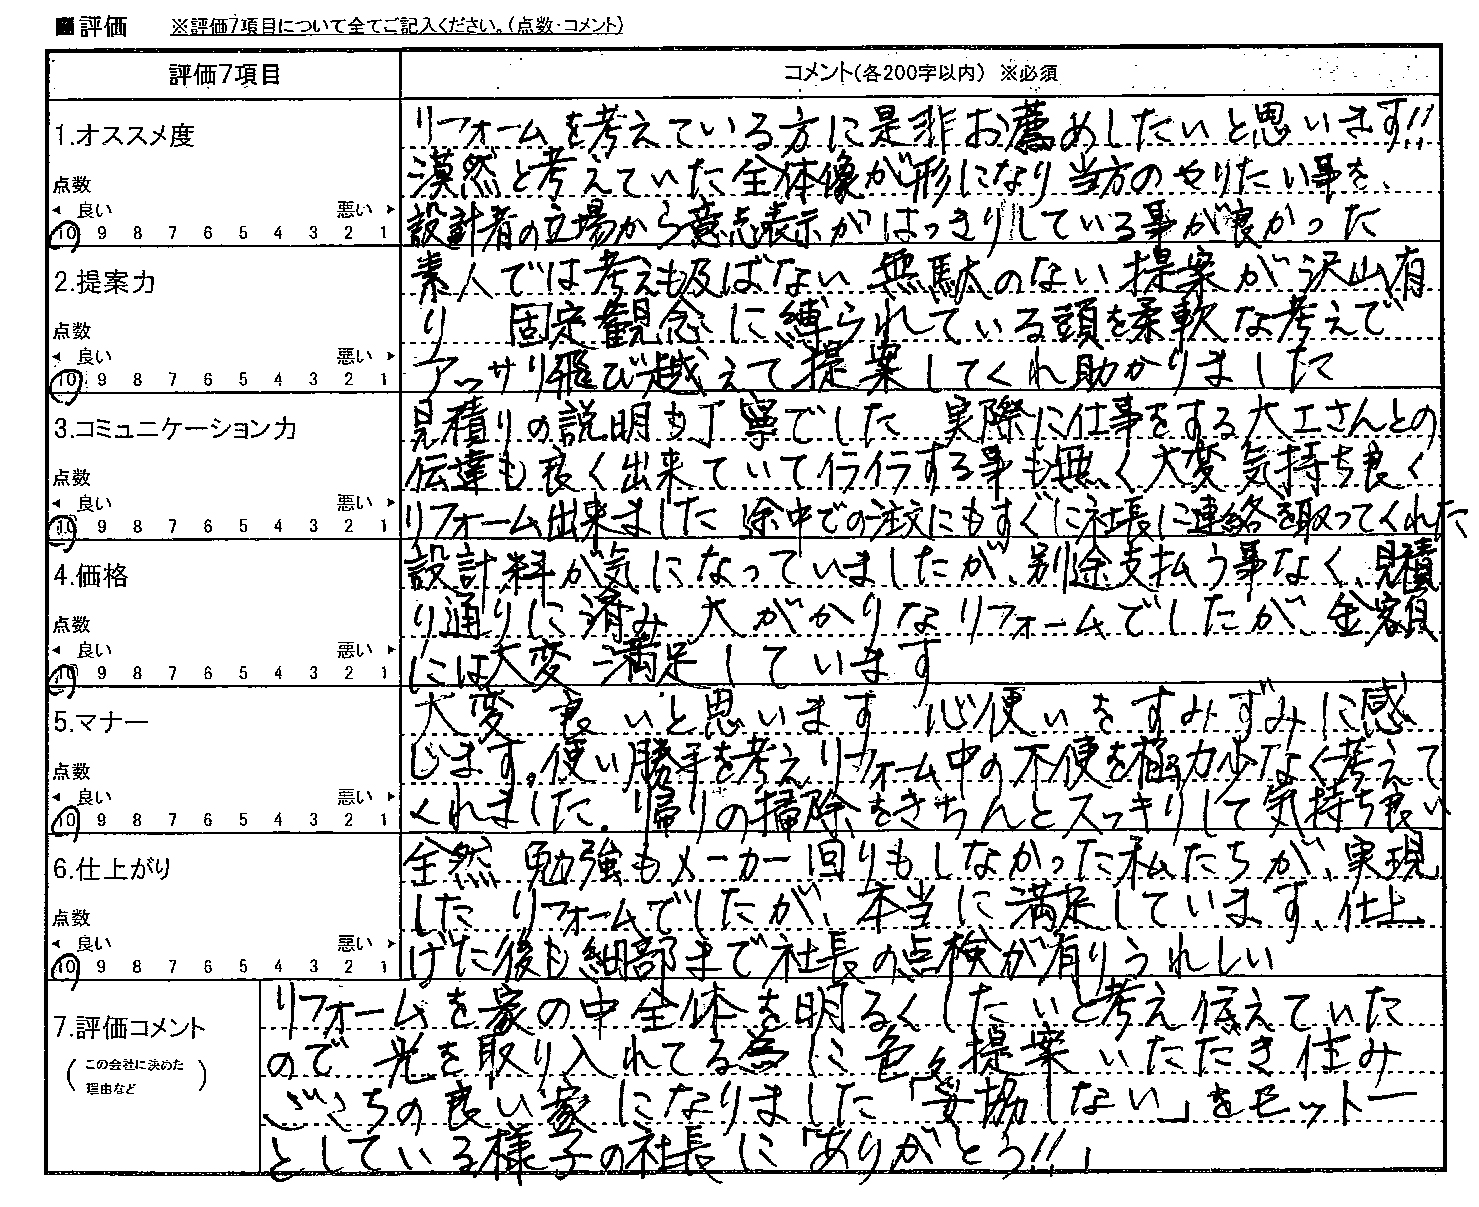 ■評価 ※評価7項目について全てご記入ください。(点数・コメント)
評価7項目 コメント(各200字以内) ※必須
1.オススメ度
点数
◀ 良い 悪い ▶
10 9 8 7 6 5 4 3 2 1
リフォームを考えている方に是非お薦めしたいと思います!!
漠然と考えていた全体像が形になり当方のやりたい事を、
設計者の立場から意志表示がはっきりしている事が良かった
2.提案力
点数
◀ 良い 悪い ▶
10 9 8 7 6 5 4 3 2 1
素人では考えも及ばない 無駄のない提案が沢山有
り 固定観念に縛られている頭を柔軟な考えで
アッサリ飛び越えて提案してくれ助かりました
3.コミュニケーション力
点数
◀ 良い 悪い ▶
10 9 8 7 6 5 4 3 2 1
見積りの説明も丁寧でした 実際に仕事をする大工さんとの
伝達も良く出来ていてイライラする事も無く大変気持ち良く
リフォーム出来ました 途中での注文にもすぐに社長に連絡を取ってくれた
4.価格
点数
◀ 良い 悪い ▶
10 9 8 7 6 5 4 3 2 1
設計料が気になっていましたが、別途支払う事なく、見積
り通りに済み 大がかりなリフォームでしたが 金額
には大変満足しています
5.マナー
点数
◀ 良い 悪い ▶
10 9 8 7 6 5 4 3 2 1
大変良いと思います 心使いをすみずみに感
じます。使い勝手を考えリフォーム中の不便を極力少なく考えて
くれました。帰りの掃除をきちんとスッキリして気持ち良い
6.仕上がり
点数
◀ 良い 悪い ▶
10 9 8 7 6 5 4 3 2 1
全然 勉強もメーカー回りもしなかった私たちが、実現
した リフォームでしたが、本当に満足しています、仕上
げた後も細部まで社長の点検が有りうれしい
7.評価コメント
(この会社に決めた
理由など)
リフォームを家の中全体を明るくしたいと考え伝えていた
ので 光を取り入れてる為に色々提案いただき住み
ごこちの良い家になりました「妥協しない」をモットー
としている様子の社長に「ありがとう!!」